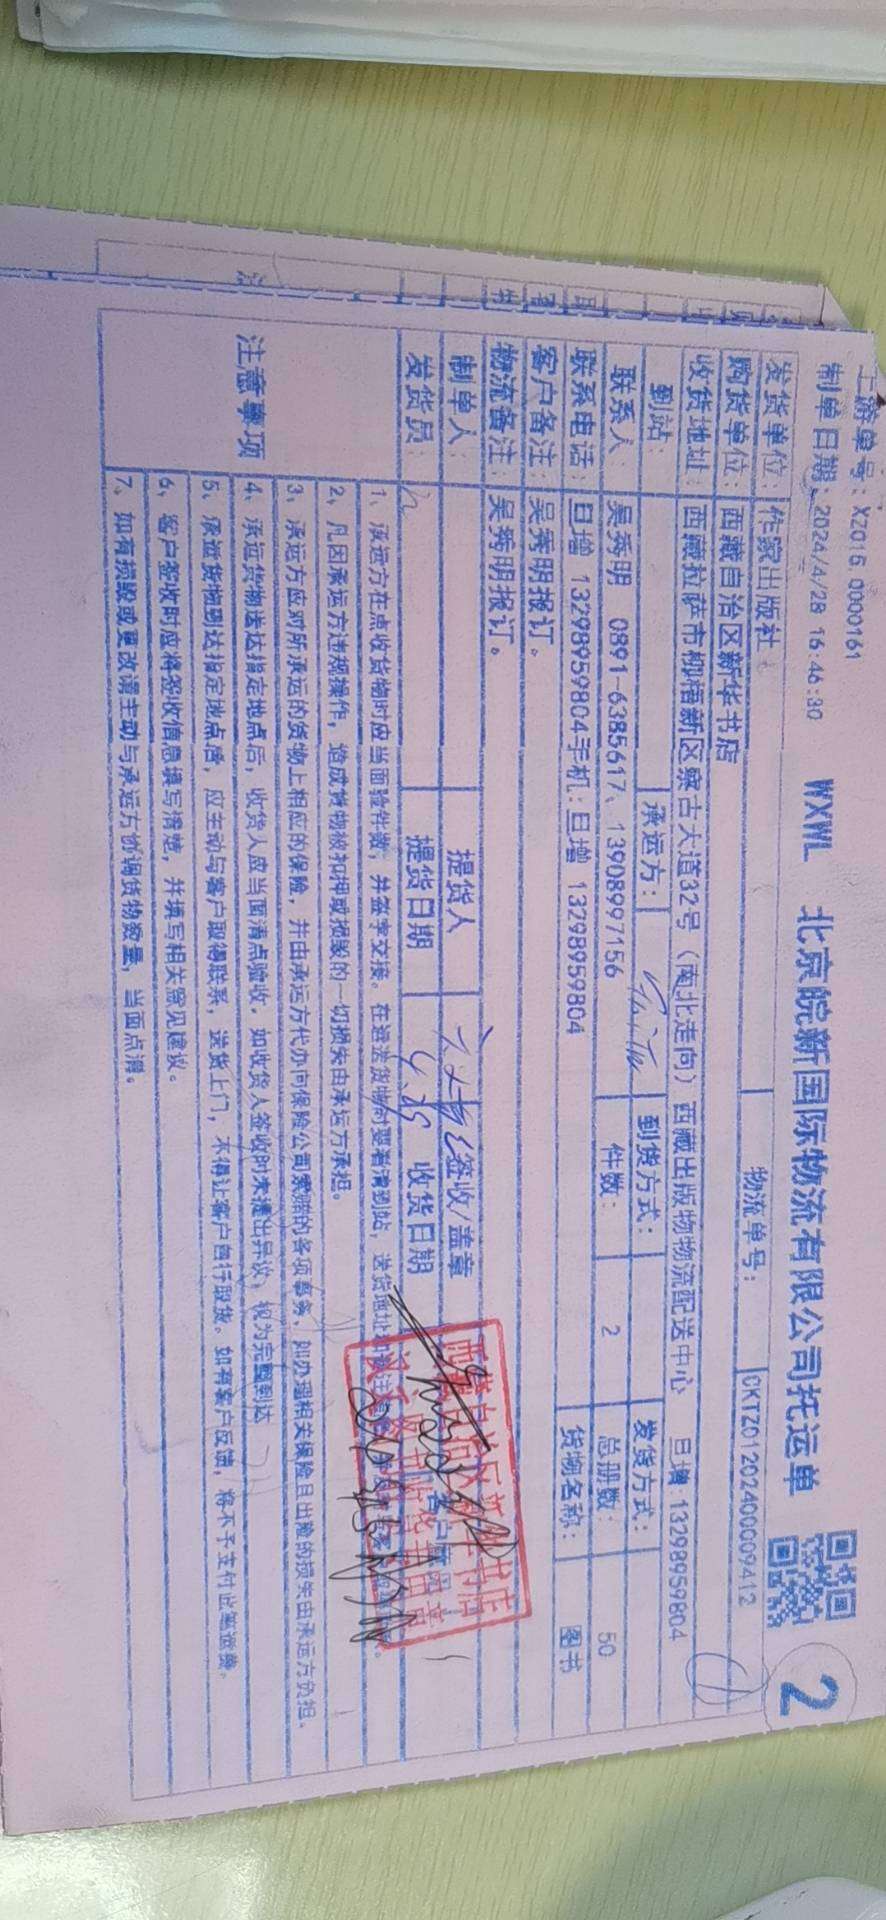 上游单号：XZ015 0000161
制单日期：2024/4/28 16:46:30 WXWL 北京皖新国际物流有限公司托运单 2
发货单位：作家出版社 物流单号：CKTZ01202400009412
购货单位：西藏自治区新华书店
收货地址：西藏拉萨市柳梧新区察古大道32号（南北走向）西藏出版物物流配送中心 旦增 13298959804
到站： 承运方： 到货方式： 发货方式：
联系人：吴秀明 0891-6385617、13908997156 件数：2 总册数：50
联系电话：旦增 13298959804手机：旦增 13298959804 货物名称：图书
客户备注：吴秀明报订。
物流备注：吴秀明报订。
制单人： 提货人 签收/盖章
发货员： 提货日期 收货日期
注意事项
1、承运方在点收货物时应当面验件数，并签字交接。在运送货物时要看清到站，送货地址
2、凡因承运方违规操作，造成货物被扣押或损毁的一切损失由承运方承担。
3、承运方应对所承运的货物上相应的保险，并由承运方代办向保险公司索赔的各项事务，如办理相关保险且出险的损失由承运方负担。
4、承运货物送达指定地点后，收货人应当面清点验收，如收货人签收时未提出异议，视为完整到达
5、承运货物到达指定地点后，应主动与客户取得联系，送货上门，不得让客户自行取货。如有客户反馈，将不予支付此笔运费。
6、客户签收时应将签收信息填写清楚，并填写相关意见建议。
7、如有损毁或更改请主动与承运方协调货物数量，当面点清。